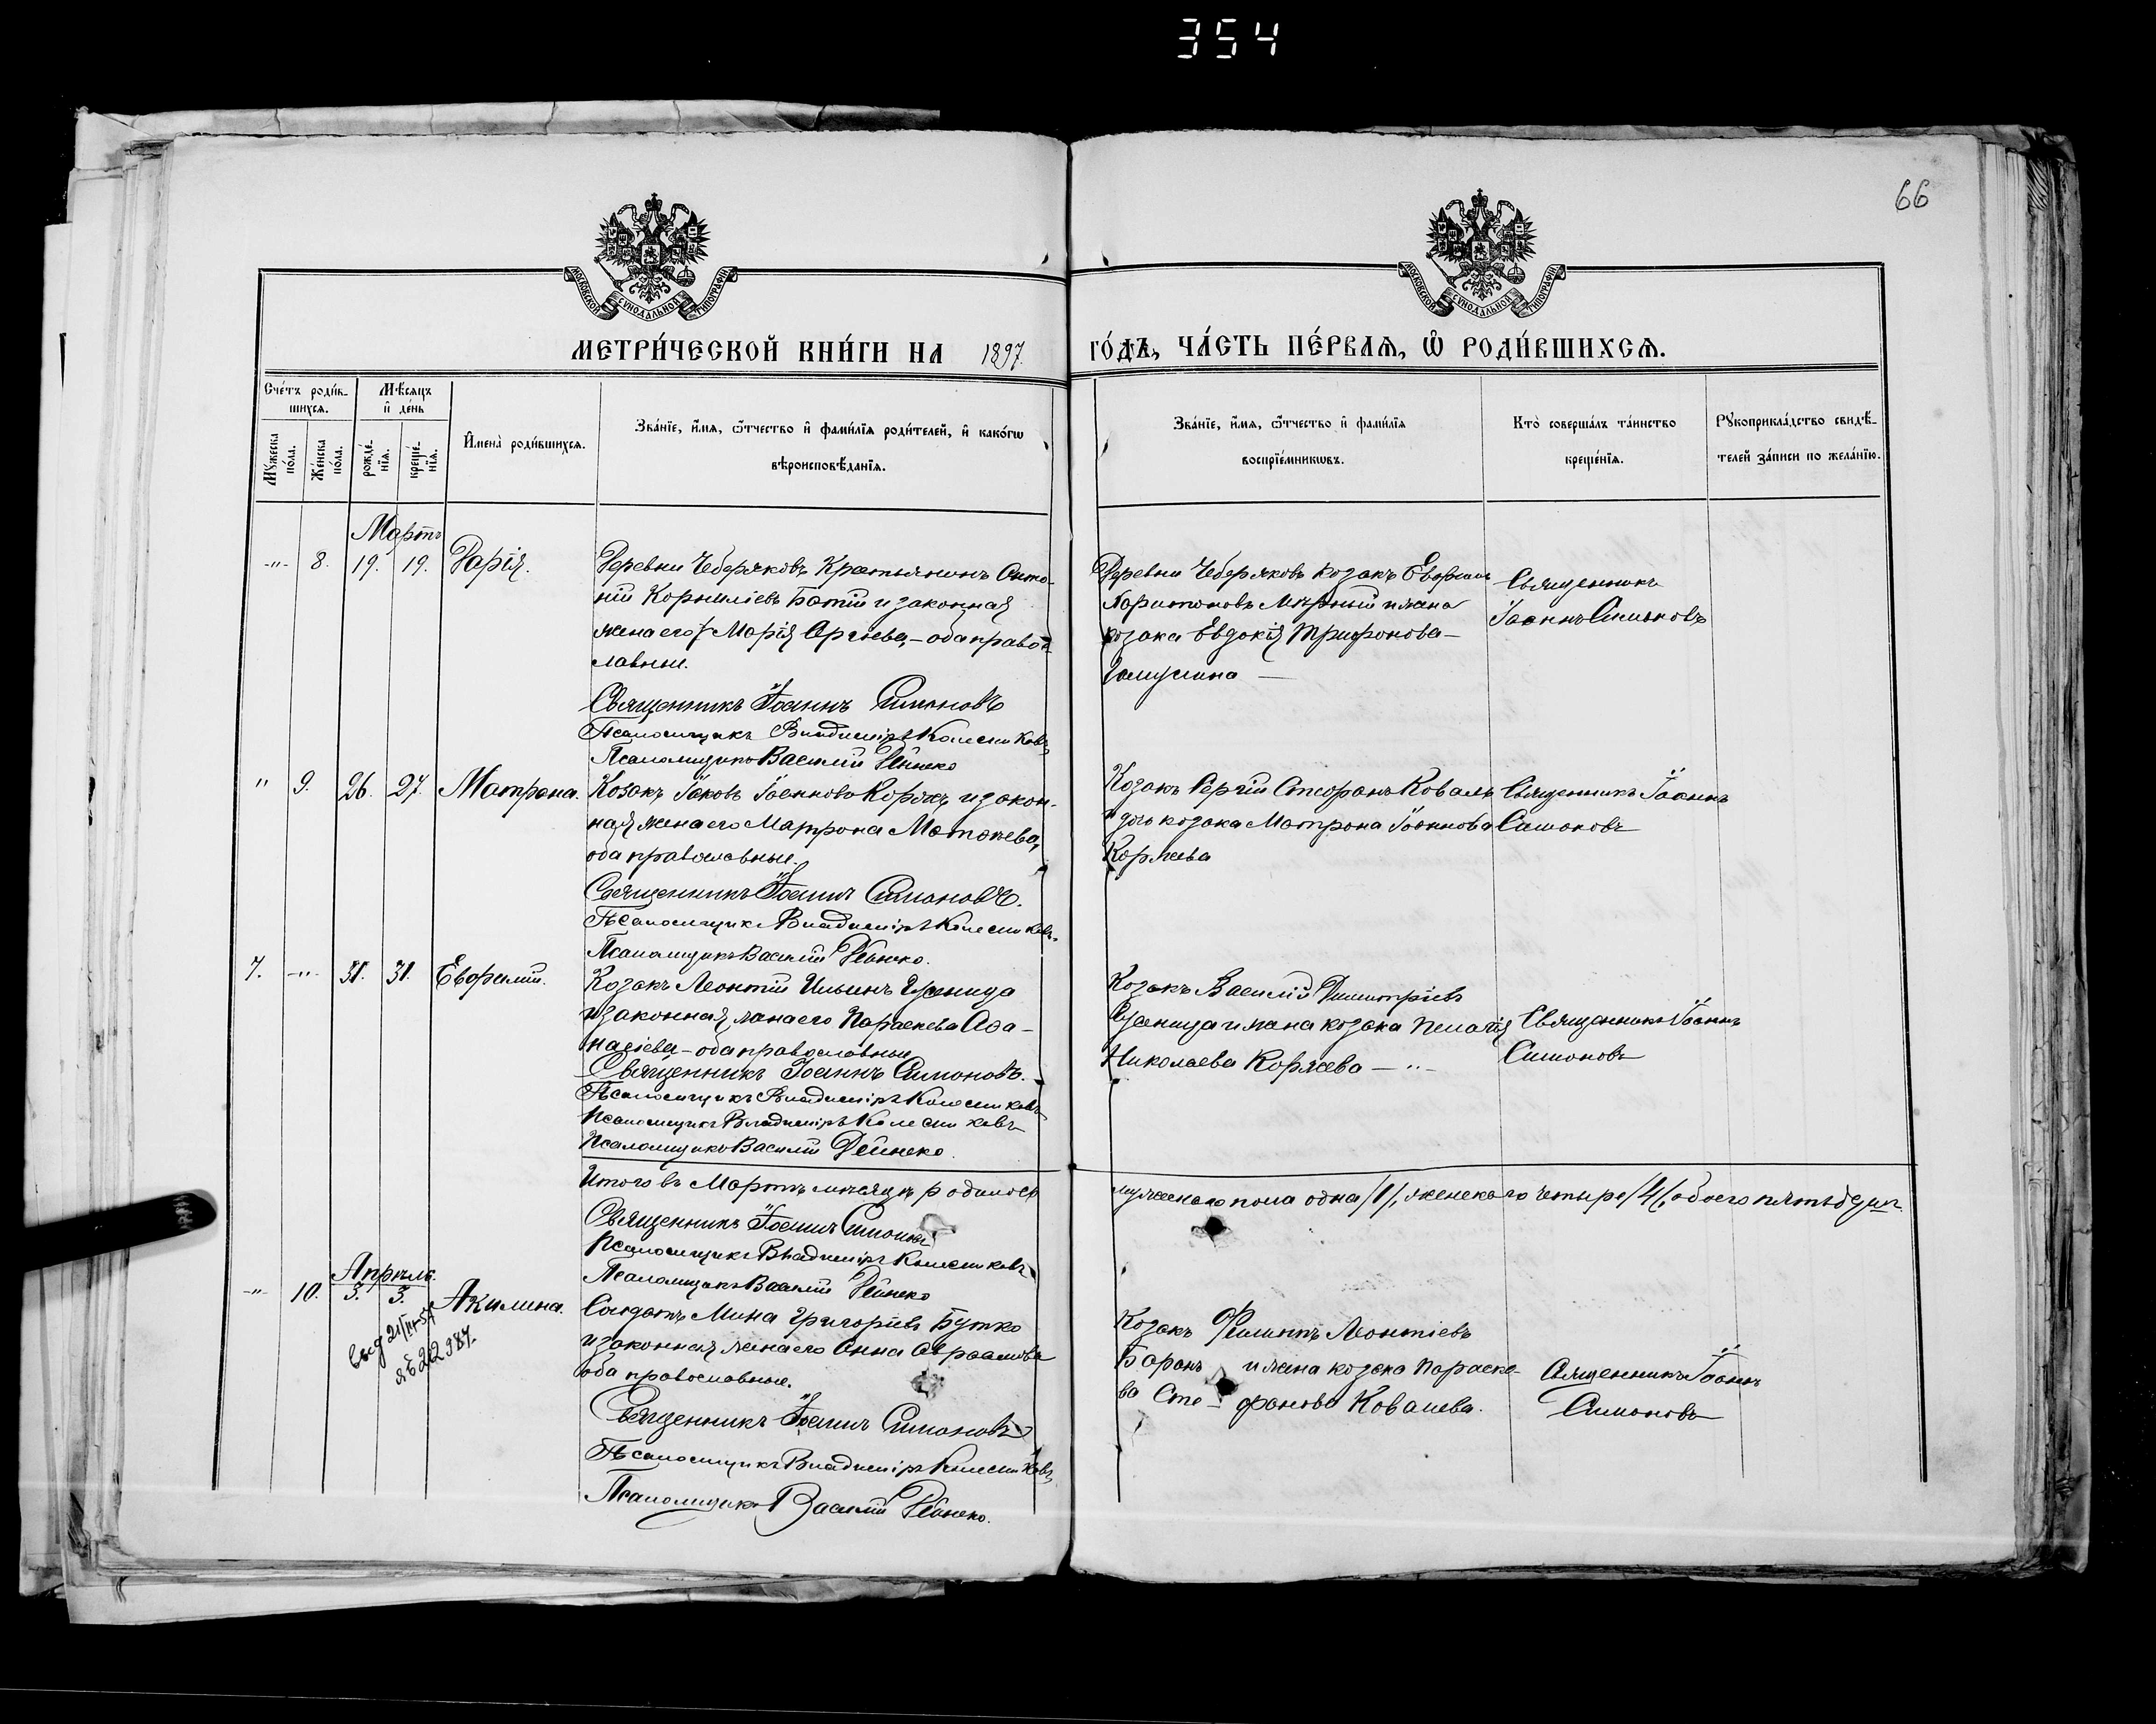 354
66
МОСКОВСКОЙ СУНОДАЛЬНОЙ ТИПОГРАФІИ
МОСКОВСКОЙ СУНОДАЛЬНОЙ ТИПОГРАФІИ
МЕТРИ́ЧЕСКОЙ КНИ́ГИ НА 1897. ГО́ДЪ, ЧА́СТЬ ПЕ́РВАѦ, Ѽ РОДИ́ВШИХСѦ.
Сче́тъ роди́в-
шихсѧ.
Мѣ́сѧцъ
и҆ де́нь
Мꙋжеска по́ла.
Же́нска по́ла.
рожде́-
нїѧ.
креще́-
нїѧ.
И҆мена̀ роди́вшихсѧ.
Зва́нїе, и҆́мѧ, ѻ҆́тчество и҆ фами́лїѧ роди́телей, и҆ како́гѡ
вѣроисповѣ́данїѧ.
Зва́нїе, и҆́мѧ, ѻ҆́тчество и҆ фами́лїѧ
воспрїе́мникѡвъ.
Кто̀ соверша́лъ та́инство
креще́нїѧ.
Рꙋкоприкла́дство свидѣ́-
телей за́писи по жела́нїю.
Мартъ
-"- 8. 19. 19. Дарія.
Деревни Чеберяковъ Крестьянинъ Анто-
ній Корниліевъ Батій и законная
жена его Марія Сргіева, - оба правос-
лавные.
Священникъ Іоаннъ Симоновъ
Псаломщикъ Владиміръ Колесниковъ
Псаломщикъ Василій Дейнеко
Деревни Чеберяковъ козакъ Евфимій
Харитоновъ Мирный и жена
козака Евдокія Трифонова -
Священникъ
Іоаннъ Симоновъ
" 9. 26. 27. Матрона.
Козакъ Іаковъ Іоанновъ Коржъ и закон-
ная жена его Матрона Матѳеева,
оба православные.
Священникъ Іоаннъ Симоновъ.
Псаломщикъ Владиміръ Колесниковъ.
Псаломщикъ Василій Дейнеко.
Козакъ Сергій Стефановъ Коваль
и дочь козака Матрона Іоаннова
Коржева
Священникъ Іоаннъ
Симоновъ
7. -"- 31. 31. Евфимій.
Козакъ Леонтій Ильинъ
и законная жена его Параскева Аѳа-
насіева - оба православные
Священникъ Іоаннъ Симоновъ.
Псаломщикъ Владиміръ Колесниковъ
Псаломщикъ Владиміръ Колесниковъ
Псаломщикъ Василій Дейнеко.
Козакъ Василій Димитріевъ
и жена козака Пелагія
Николаева Коржева - " -
Священникъ Іоаннъ
Симоновъ
Итого въ Мартѣ мѣсяцѣ родилось мужескаго пола одна /1/, женскаго четыре /4/, обоего пять душъ.
Священникъ Іоаннъ Симоновъ
Псаломщикъ Владиміръ Колесниковъ
Псаломщикъ Василій Дейнеко
Апрѣль.
-"- 10. 3. 3. Акилина.
выд 21/III-57
ЯБ 212987.
Солдатъ Мина Григоріевъ Бутко
и законная жена его Анна Авраамова
оба православные.
Священникъ Іоаннъ Симоновъ
Псаломщикъ Владиміръ Колесниковъ
Псаломщикъ Василій Дейнеко.
Козакъ Филиппъ Леонтіевъ
Баронъ и жена козака Параске-
ва Сте - фанова Ковалева.
Священникъ Іоаннъ
Симоновъ